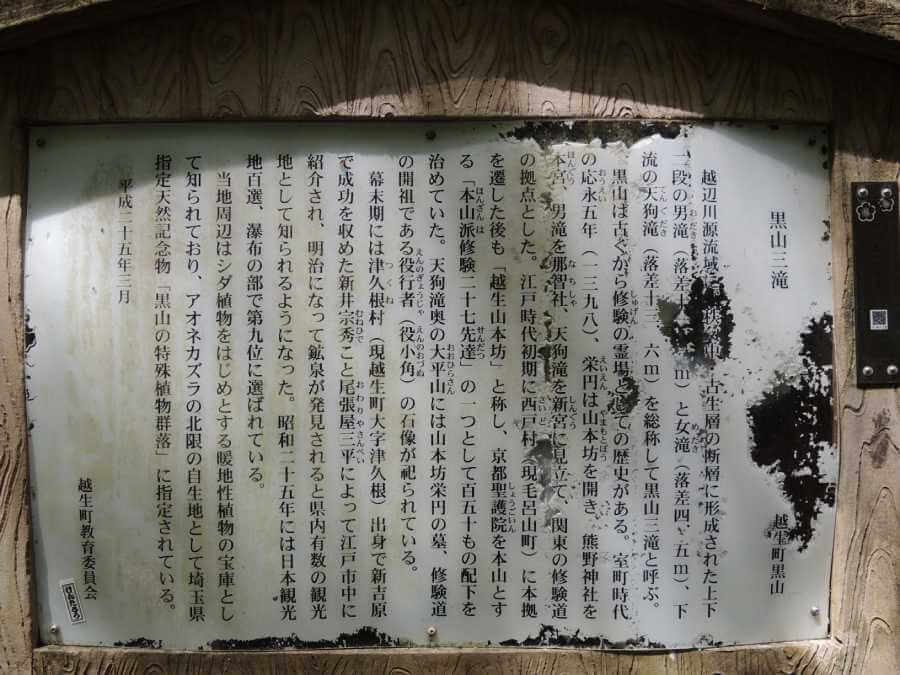 黒山三滝 越生町黒山
越辺川源流域 秩父中・古生層の断層に形成された上下
二段の男滝（落差十 m）と女滝（落差四、五m）、下
流の天狗滝（落差十三、六m）を総称して黒山三滝と呼ぶ。
黒山は古くから修験の霊場としての歴史がある。室町時代
の応永五年（一三九八）、栄円は山本坊を開き、熊野神社を
本宮、男滝を那智社、天狗滝を新宮に見立て、関東の修験道
の拠点とした。江戸時代初期に西戸村（現毛呂山町）に本拠
を遷した後も「越生山本坊」と称し、京都聖護院を本山とす
る「本山派修験二十七先達」の一つとして百五十もの配下を
治めていた。天狗滝奥の大平山には山本坊栄円の墓、修験道
の開祖である役行者（役小角）の石像が祀られている。
幕末期には津久根村（現越生町大字津久根）出身で新吉原
で成功を収めた新井宗秀こと尾張屋三平によって江戸市中に
紹介され、明治になって鉱泉が発見されると県内有数の観光
地として知られるようになった。昭和二十五年には日本観光
地百選、瀑布の部で第九位に選ばれている。
当地周辺はシダ植物をはじめとする暖地性植物の宝庫とし
て知られており、アオネカズラの北限の自生地として埼玉県
指定天然記念物「黒山の特殊植物群落」に指定されている。
平成二十五年三月
越生町教育委員会